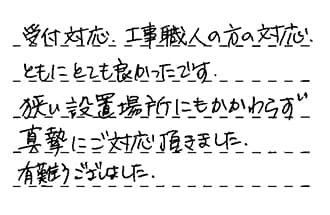 受付対応、工事職人の方の対応、
ともにとても良かったです.
狭い設置場所にもかかわらず
真摯にご対応頂きました.
有難うございました.